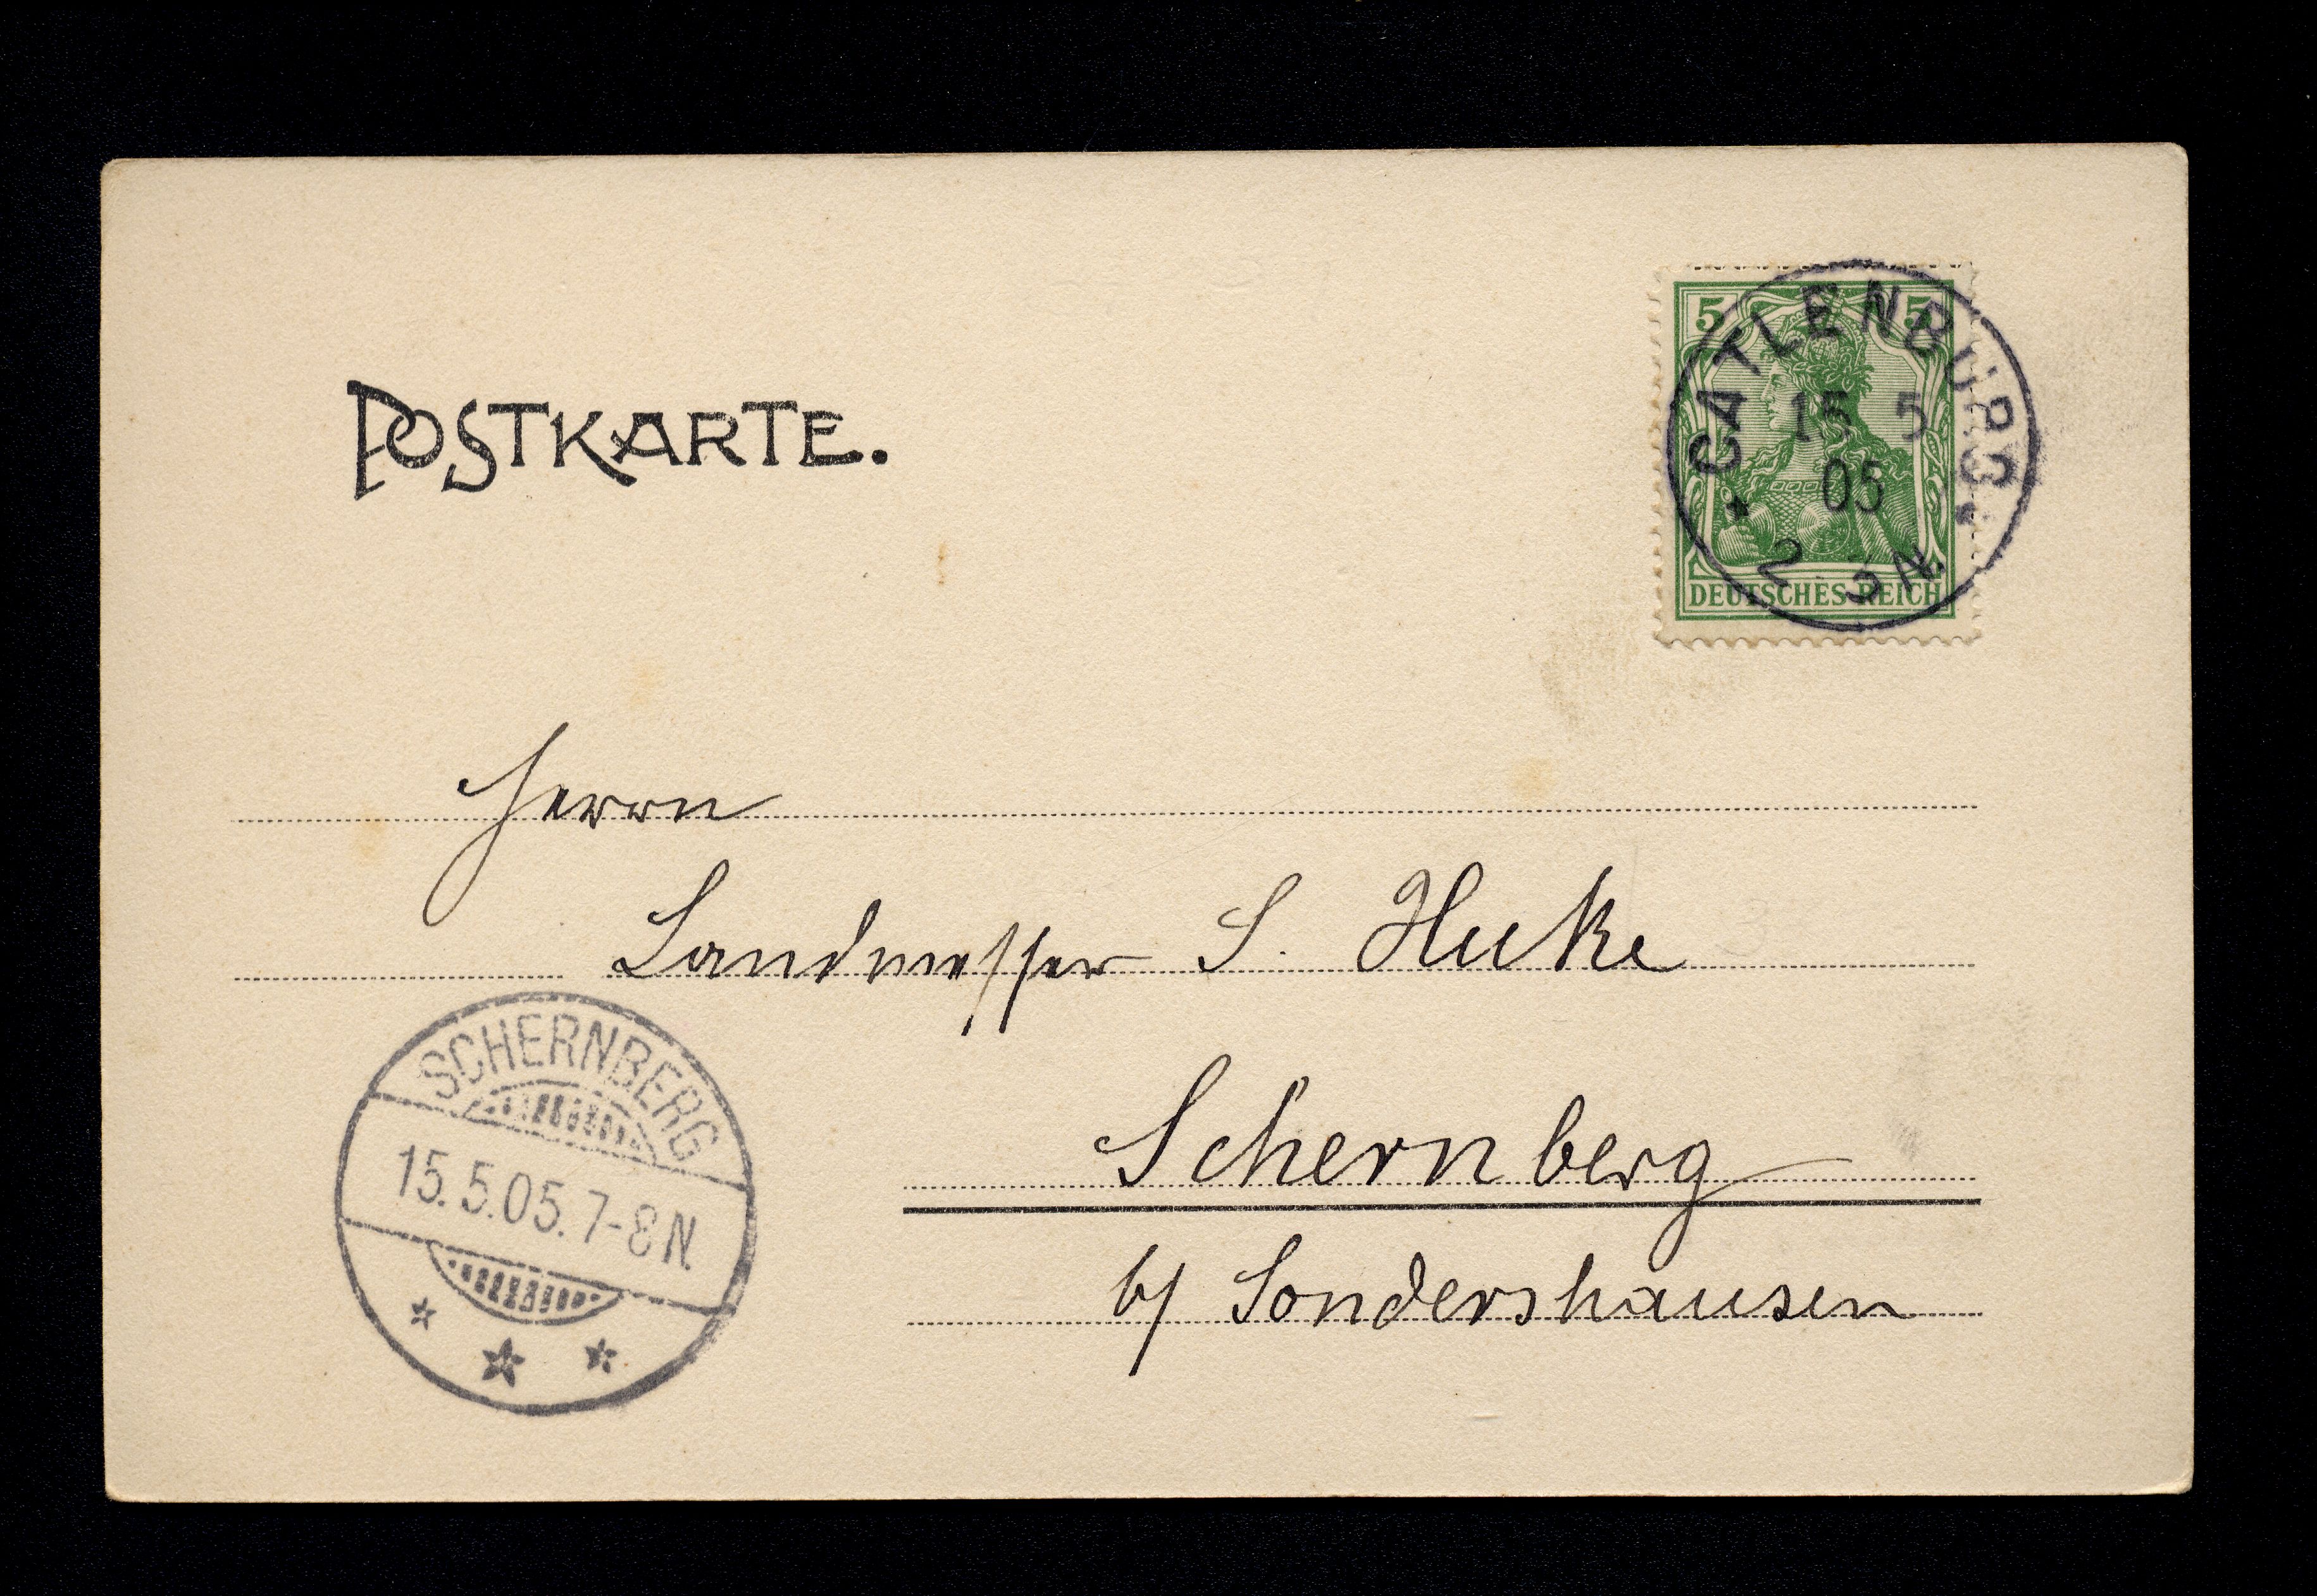 POSTKARTE.
5 5
CATLENBURG
15 5
05
2 3N
DEUTSCHES REICH
Herrn
Landmesser S. Huke
Schernberg
b/ Sondershausen
SCHERNBERG
15.5.05.7-8N.